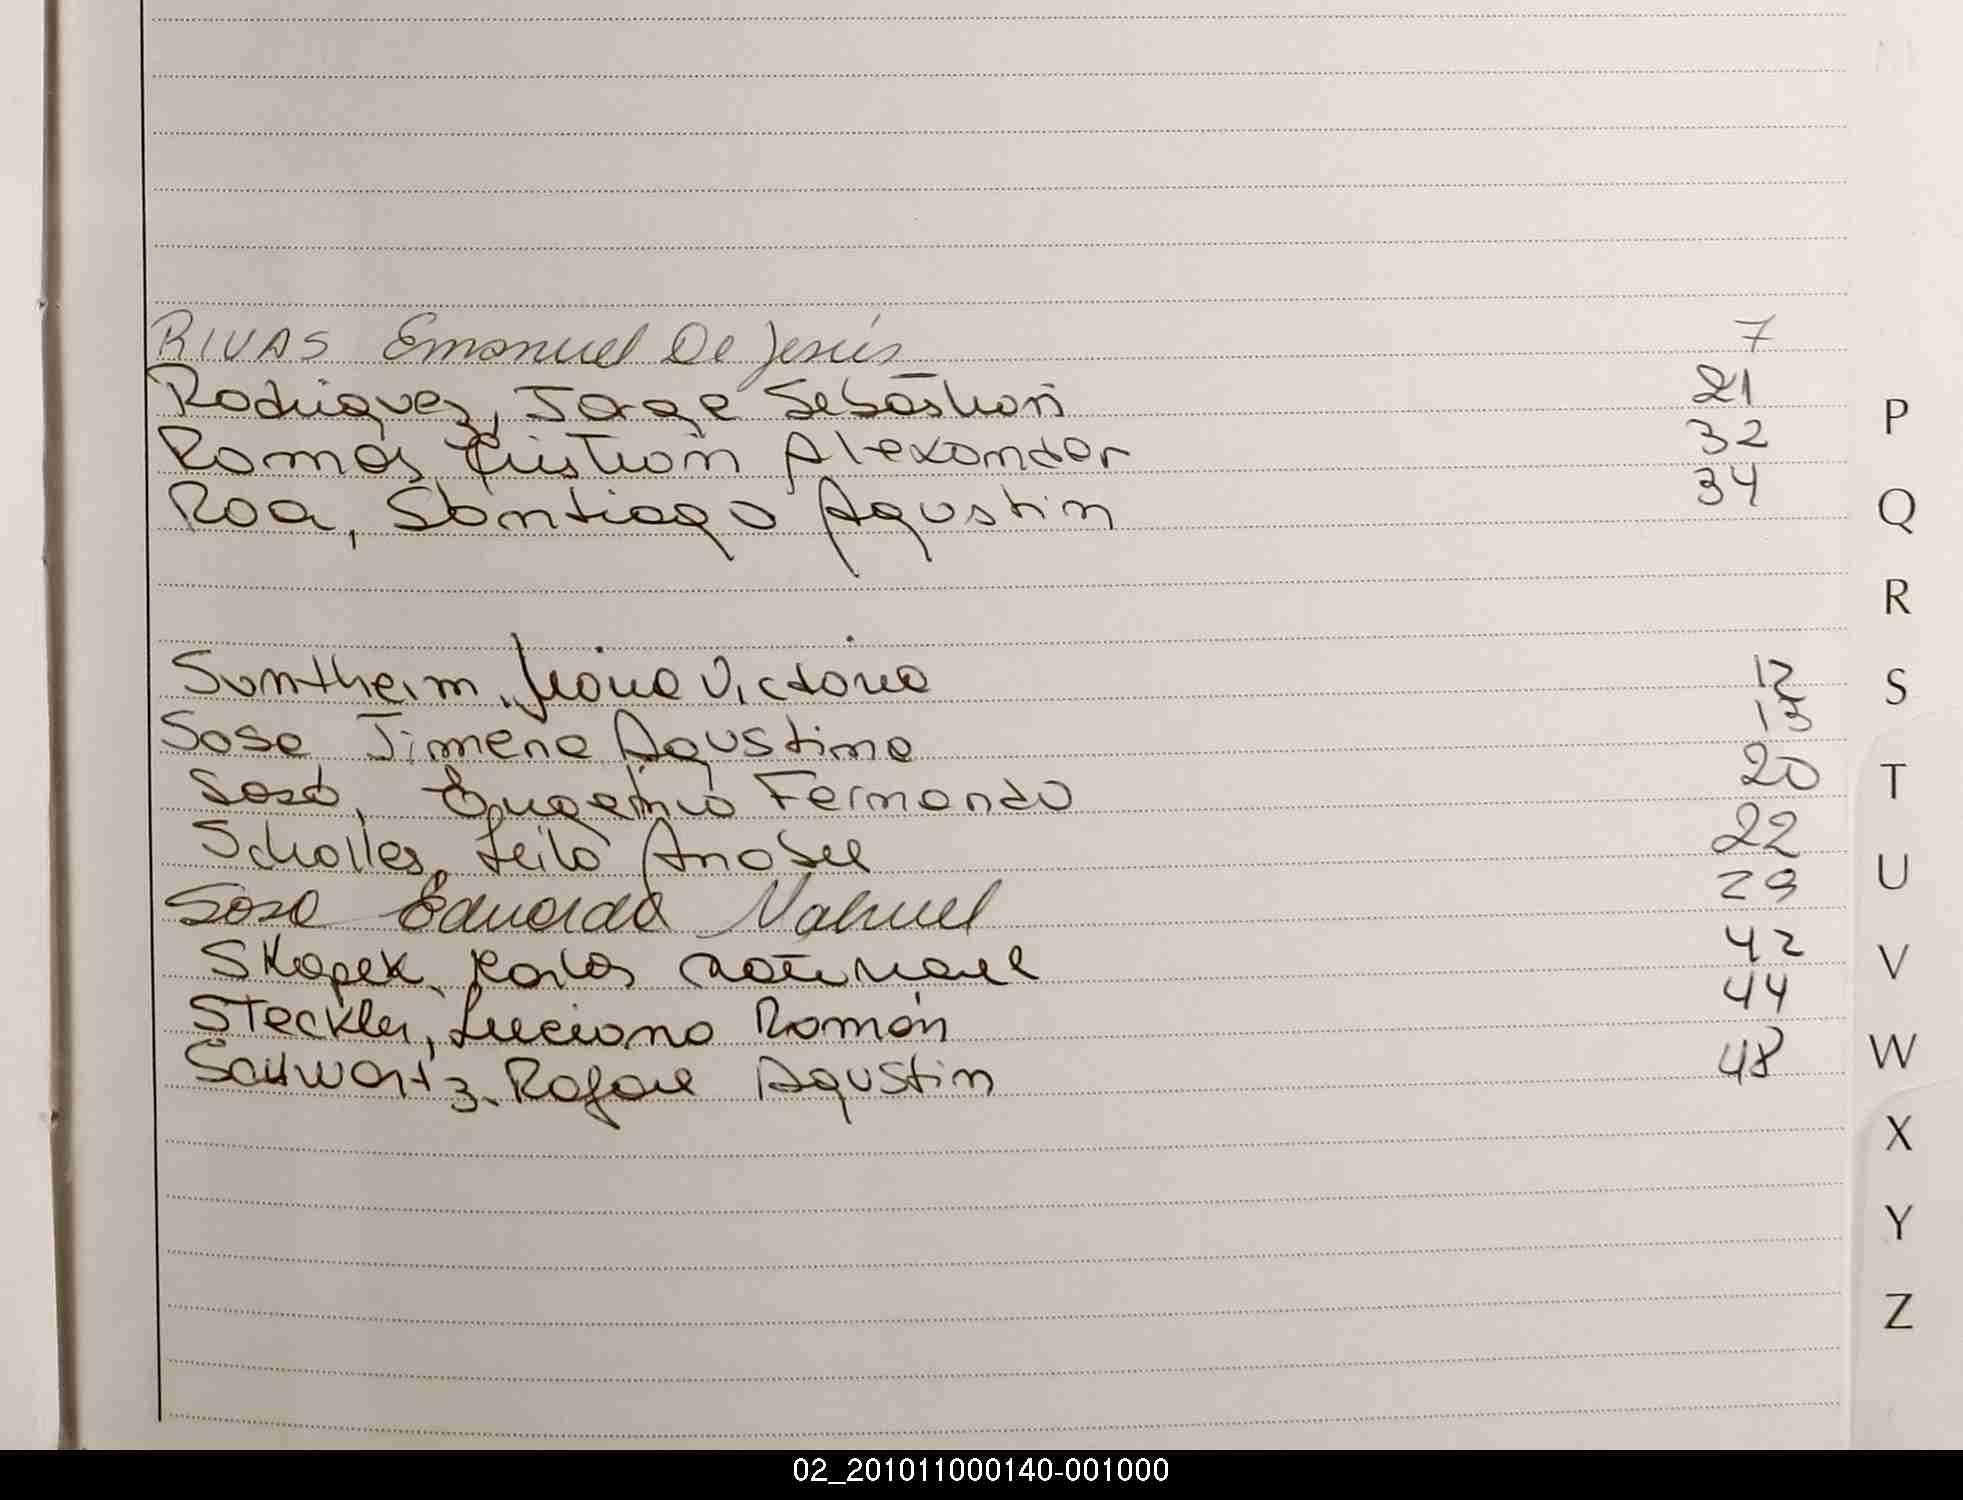 RIVAS Emanuel De Jesús 7
Rodriguez, Jorge Sebástian 21
Ramos Cristian Alexander 32
Roa, Santiago Agustin 34
P
Q
R
Suntheim, Maria Victoria 12
S
Sosa Jimena Agustina 13
T
Sosa, Eugenio Fernando 20
Scholles, Leila Anabel 22
U
Sosa Eduardo Nahuel 29
Skapek, Karlos 42
V
Steckler, Luciano Román 44
W
Schwartz. Rafael Agustin 48
X
Y
Z
02_201011000140-001000